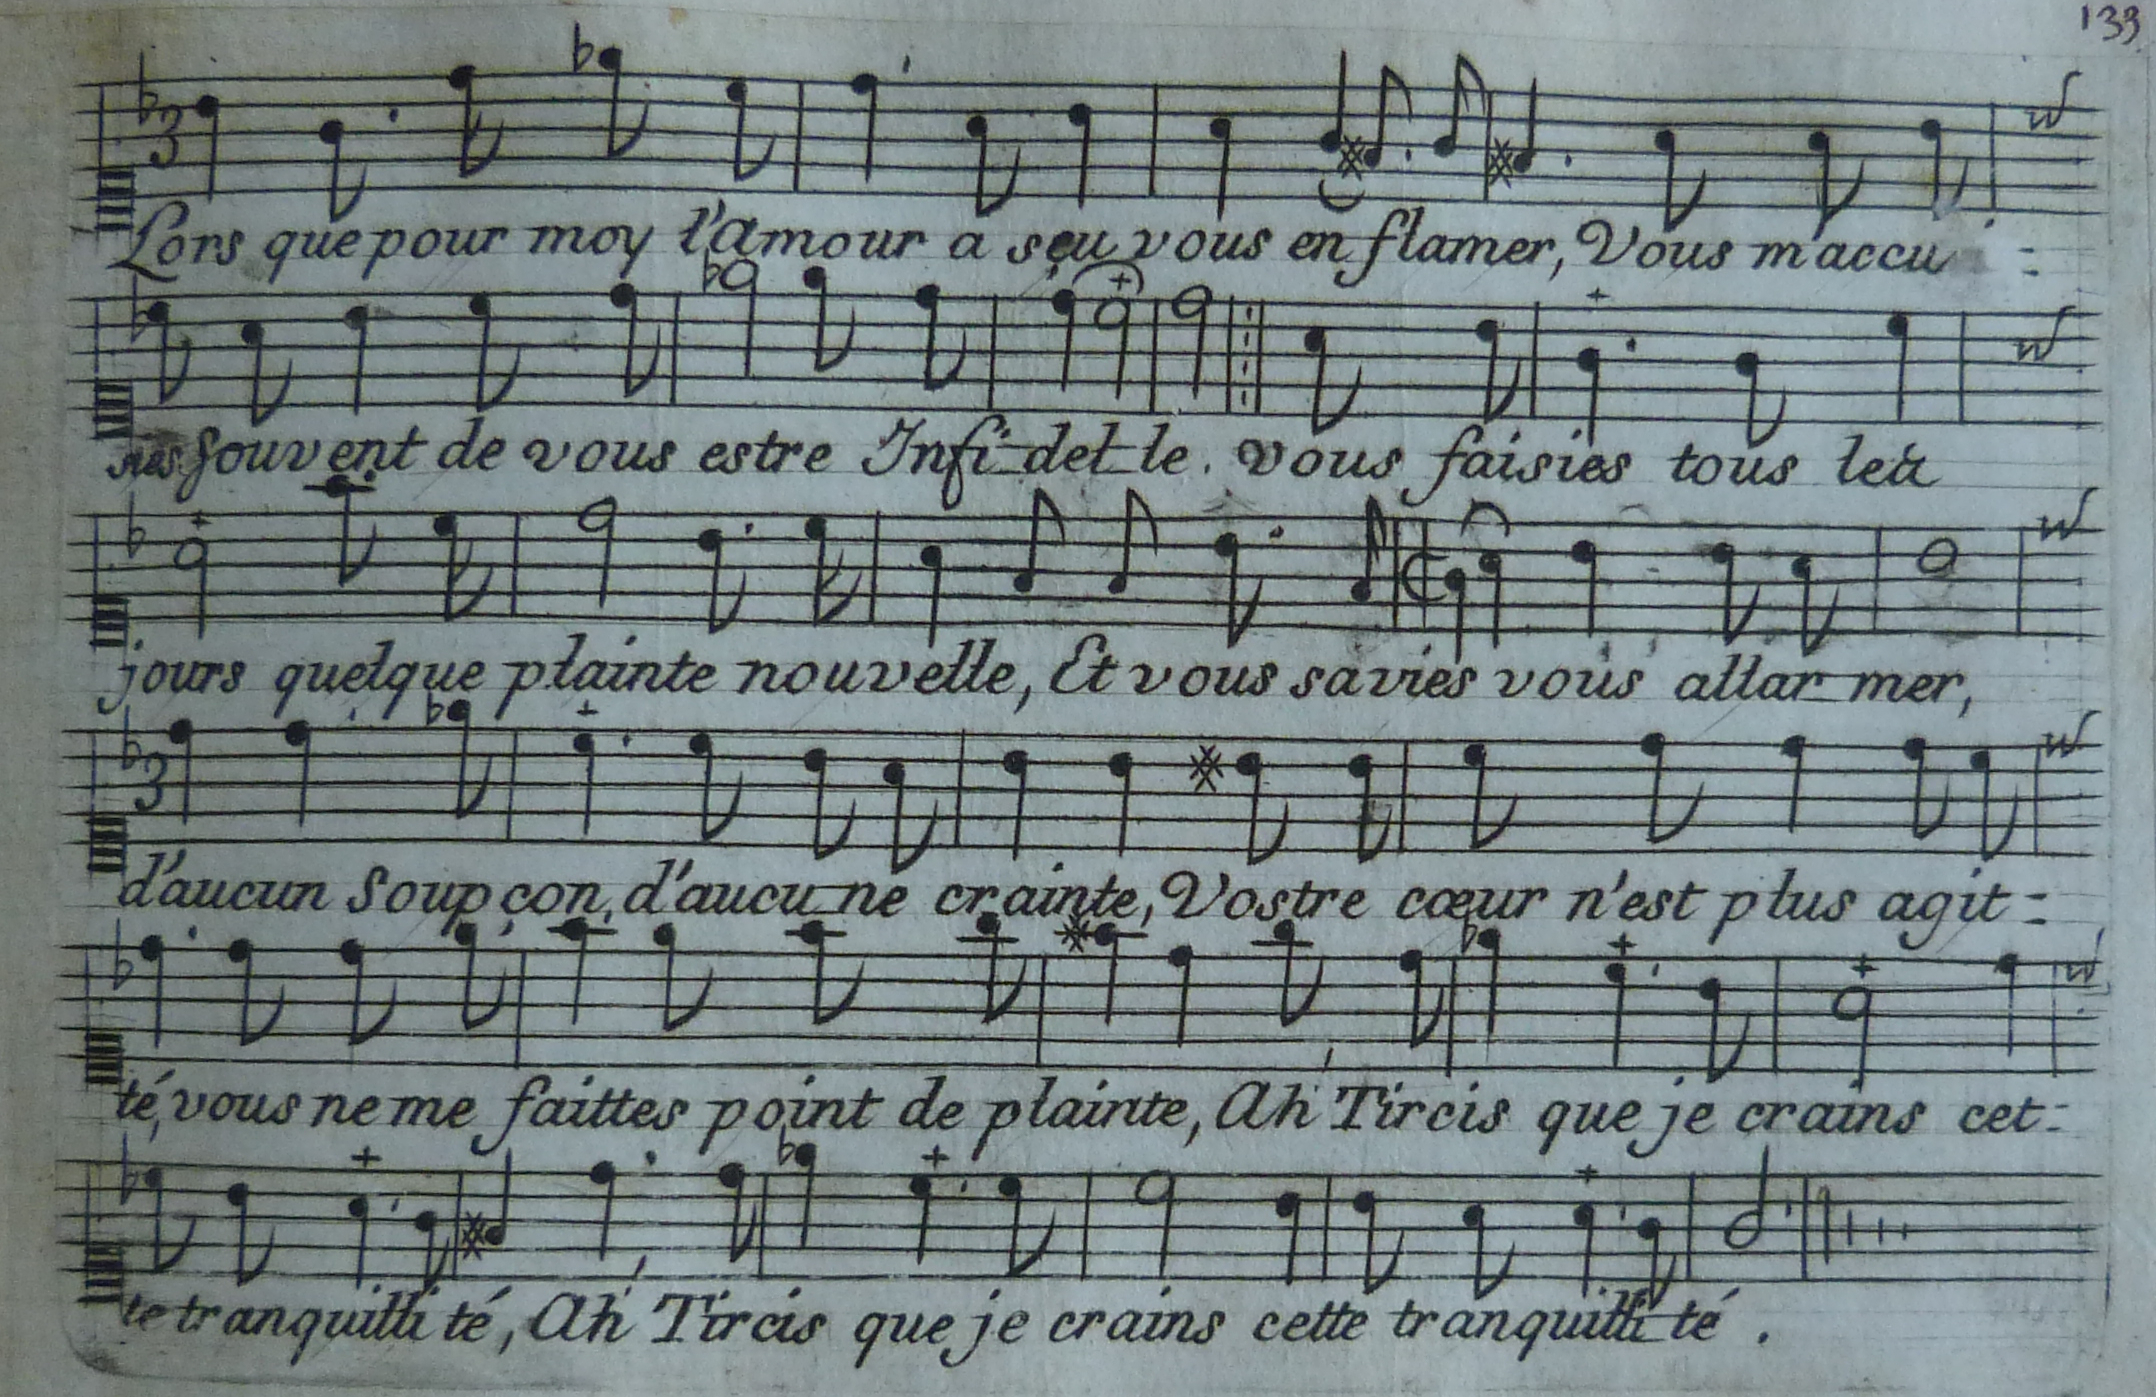 133
Lors que pour moy l'amour a sçu vous enflamer, Vous m'accu =
siés souvent de vous estre Infidelle. vous faisiés tous les
jours quelque plainte nouvelle, Et vous saviés vous allarmer,
d'aucun soupçon, d'aucune crainte, Vostre cœur n'est plus agit =
té, vous ne me faittes point de plainte, Ah Tircis que je crains cet =
te tranquillité, Ah Tircis que je crains cette tranquillité.